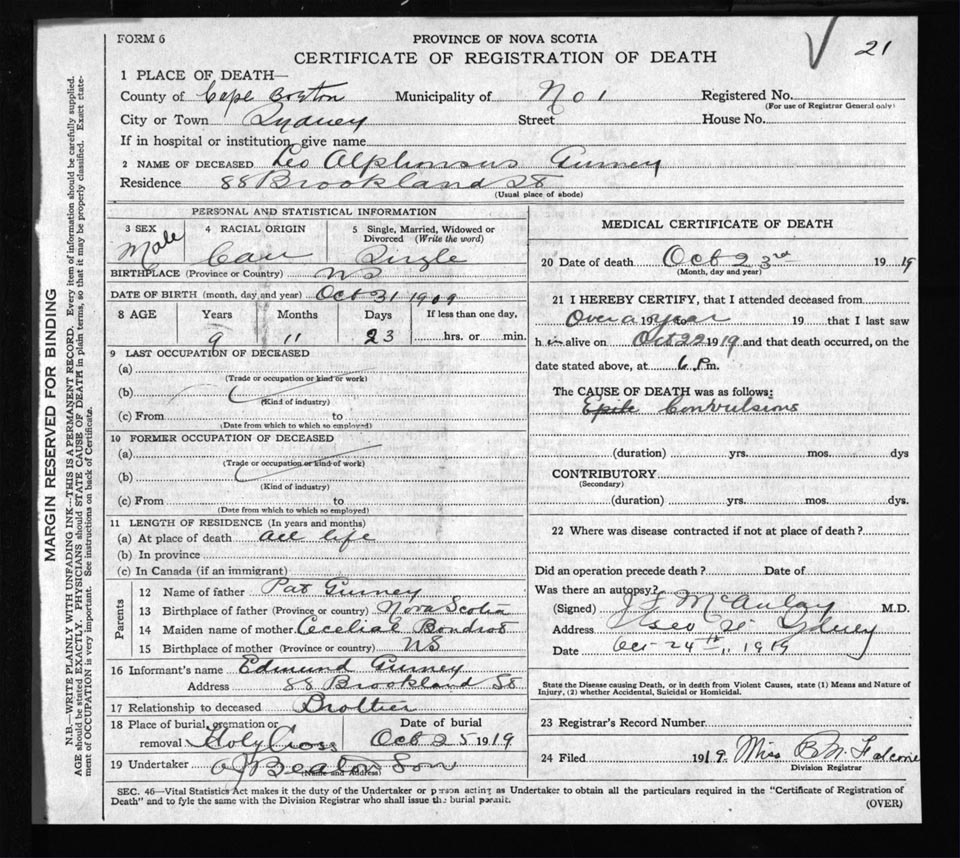 21
FORM 6
PROVINCE OF NOVA SCOTIA
CERTIFICATE OF REGISTRATION OF DEATH
1 PLACE OF DEATH—
County of Cape Breton Municipality of No 1 Registered No.
(For use of Registrar General only)
City or Town Sydney Street House No.
If in hospital or institution, give name
2 NAME OF DECEASED Leo Alphonsus Gurney
Residence 88 Brookland St
(Usual place of abode)
PERSONAL AND STATISTICAL INFORMATION
3 SEX Male
4 RACIAL ORIGIN Cau
5 Single, Married, Widowed or Divorced (Write the word) Single
BIRTHPLACE (Province or Country) NS
DATE OF BIRTH (month, day and year) Oct 31 1909
8 AGE Years Months Days If less than one day,
9 11 23 hrs. or min.
9 LAST OCCUPATION OF DECEASED
(a)
(Trade or occupation or kind or work)
(b)
(Kind of industry)
(c) From to
(Date from which to which so employed)
10 FORMER OCCUPATION OF DECEASED
(a)
(Trade or occupation or kind of work)
(b)
(Kind of industry)
(c) From to
(Date from which to which so employed)
11 LENGTH OF RESIDENCE (In years and months)
(a) At place of death all life
(b) In province
(c) In Canada (if an immigrant)
Parents
12 Name of father Pat Gurney
13 Birthplace of father (Province or country) Nova Scotia
14 Maiden name of mother
15 Birthplace of mother (Province or country) NS
16 Informant's name Edmund Gurney
Address 88 Brookland St
17 Relationship to deceased Brother
18 Place of burial, cremation or removal Holy Cross
Date of burial Oct 25 1919
19 Undertaker A J Beaton Son
(Name and Address)
MEDICAL CERTIFICATE OF DEATH
20 Date of death Oct 23rd 1919
(Month, day and year)
21 I HEREBY CERTIFY, that I attended deceased from
Over a year 19 to 19 that I last saw
h im alive on Oct 22 1919 and that death occurred, on the
date stated above, at 6 P.m.
The CAUSE OF DEATH was as follows:
Epile Convulsions
(duration) yrs. mos. dys
CONTRIBUTORY
(Secondary)
(duration) yrs. mos. dys.
22 Where was disease contracted if not at place of death?
Did an operation precede death? Date of
Was there an autopsy?
(Signed) J F McAulay M.D.
Address Sydney
Date Oct 24th, 1919
State the Disease causing Death, or in death from Violent Causes, state (1) Means and Nature of
Injury, (2) whether Accidental, Suicidal or Homicidal.
23 Registrar's Record Number
24 Filed 1919 Miss B M Falconer
Division Registrar
SEC. 46—Vital Statistics Act makes it the duty of the Undertaker or person acting as Undertaker to obtain all the particulars required in the "Certificate of Registration of
Death" and to fyle the same with the Division Registrar who shall issue the burial permit.
(OVER)
MARGIN RESERVED FOR BINDING
N.B.—WRITE PLAINLY WITH UNFADING INK—THIS IS A PERMANENT RECORD. Every item of information should be carefully supplied.
AGE should be stated EXACTLY. PHYSICIANS should STATE CAUSE OF DEATH in plain terms, so that it may be properly classified. Exact state-
ment of OCCUPATION is very important. See instructions on back of Certificate.